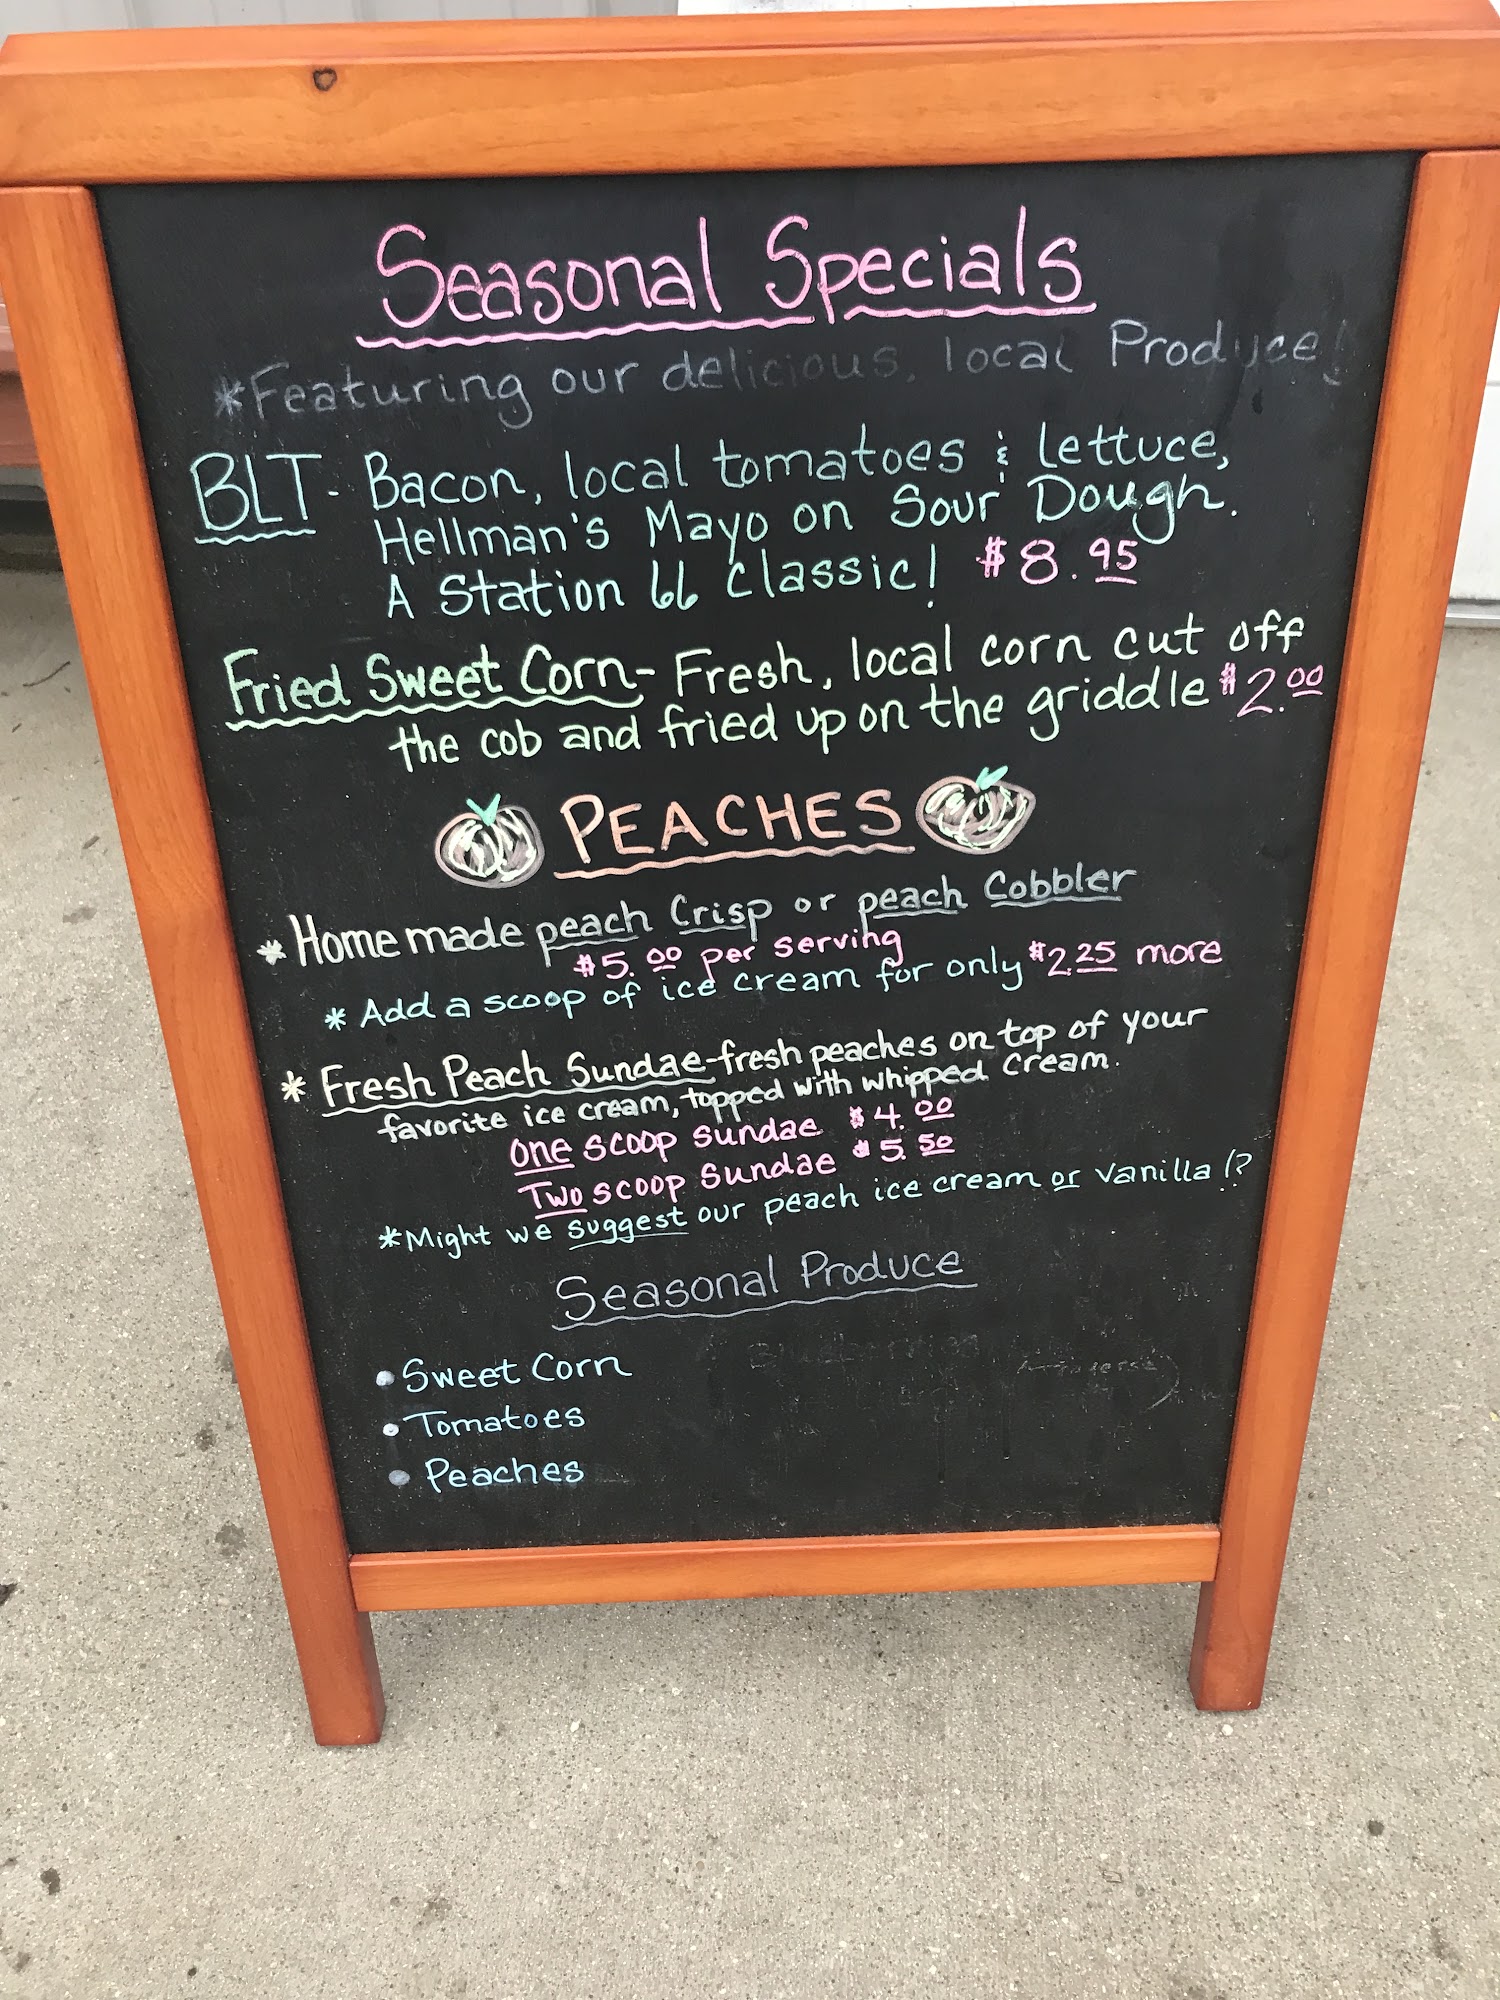 Seasonal Specials
*Featuring our delicious, local Produce!
BLT - Bacon, local tomatoes & lettuce,
Hellman's Mayo on Sour Dough.
A Station 66 Classic! $8.95
Fried Sweet Corn - Fresh, local corn cut off
the cob and fried up on the griddle $2.00
PEACHES
* Homemade peach Crisp or peach Cobbler
$5.00 per serving
* Add a scoop of ice cream for only $2.25 more
* Fresh Peach Sundae - fresh peaches on top of your
favorite ice cream, topped with whipped cream.
One scoop sundae $4.00
Two scoop sundae $5.50
*Might we suggest our peach ice cream or vanilla!?
Seasonal Produce
• Sweet Corn
• Tomatoes
• Peaches